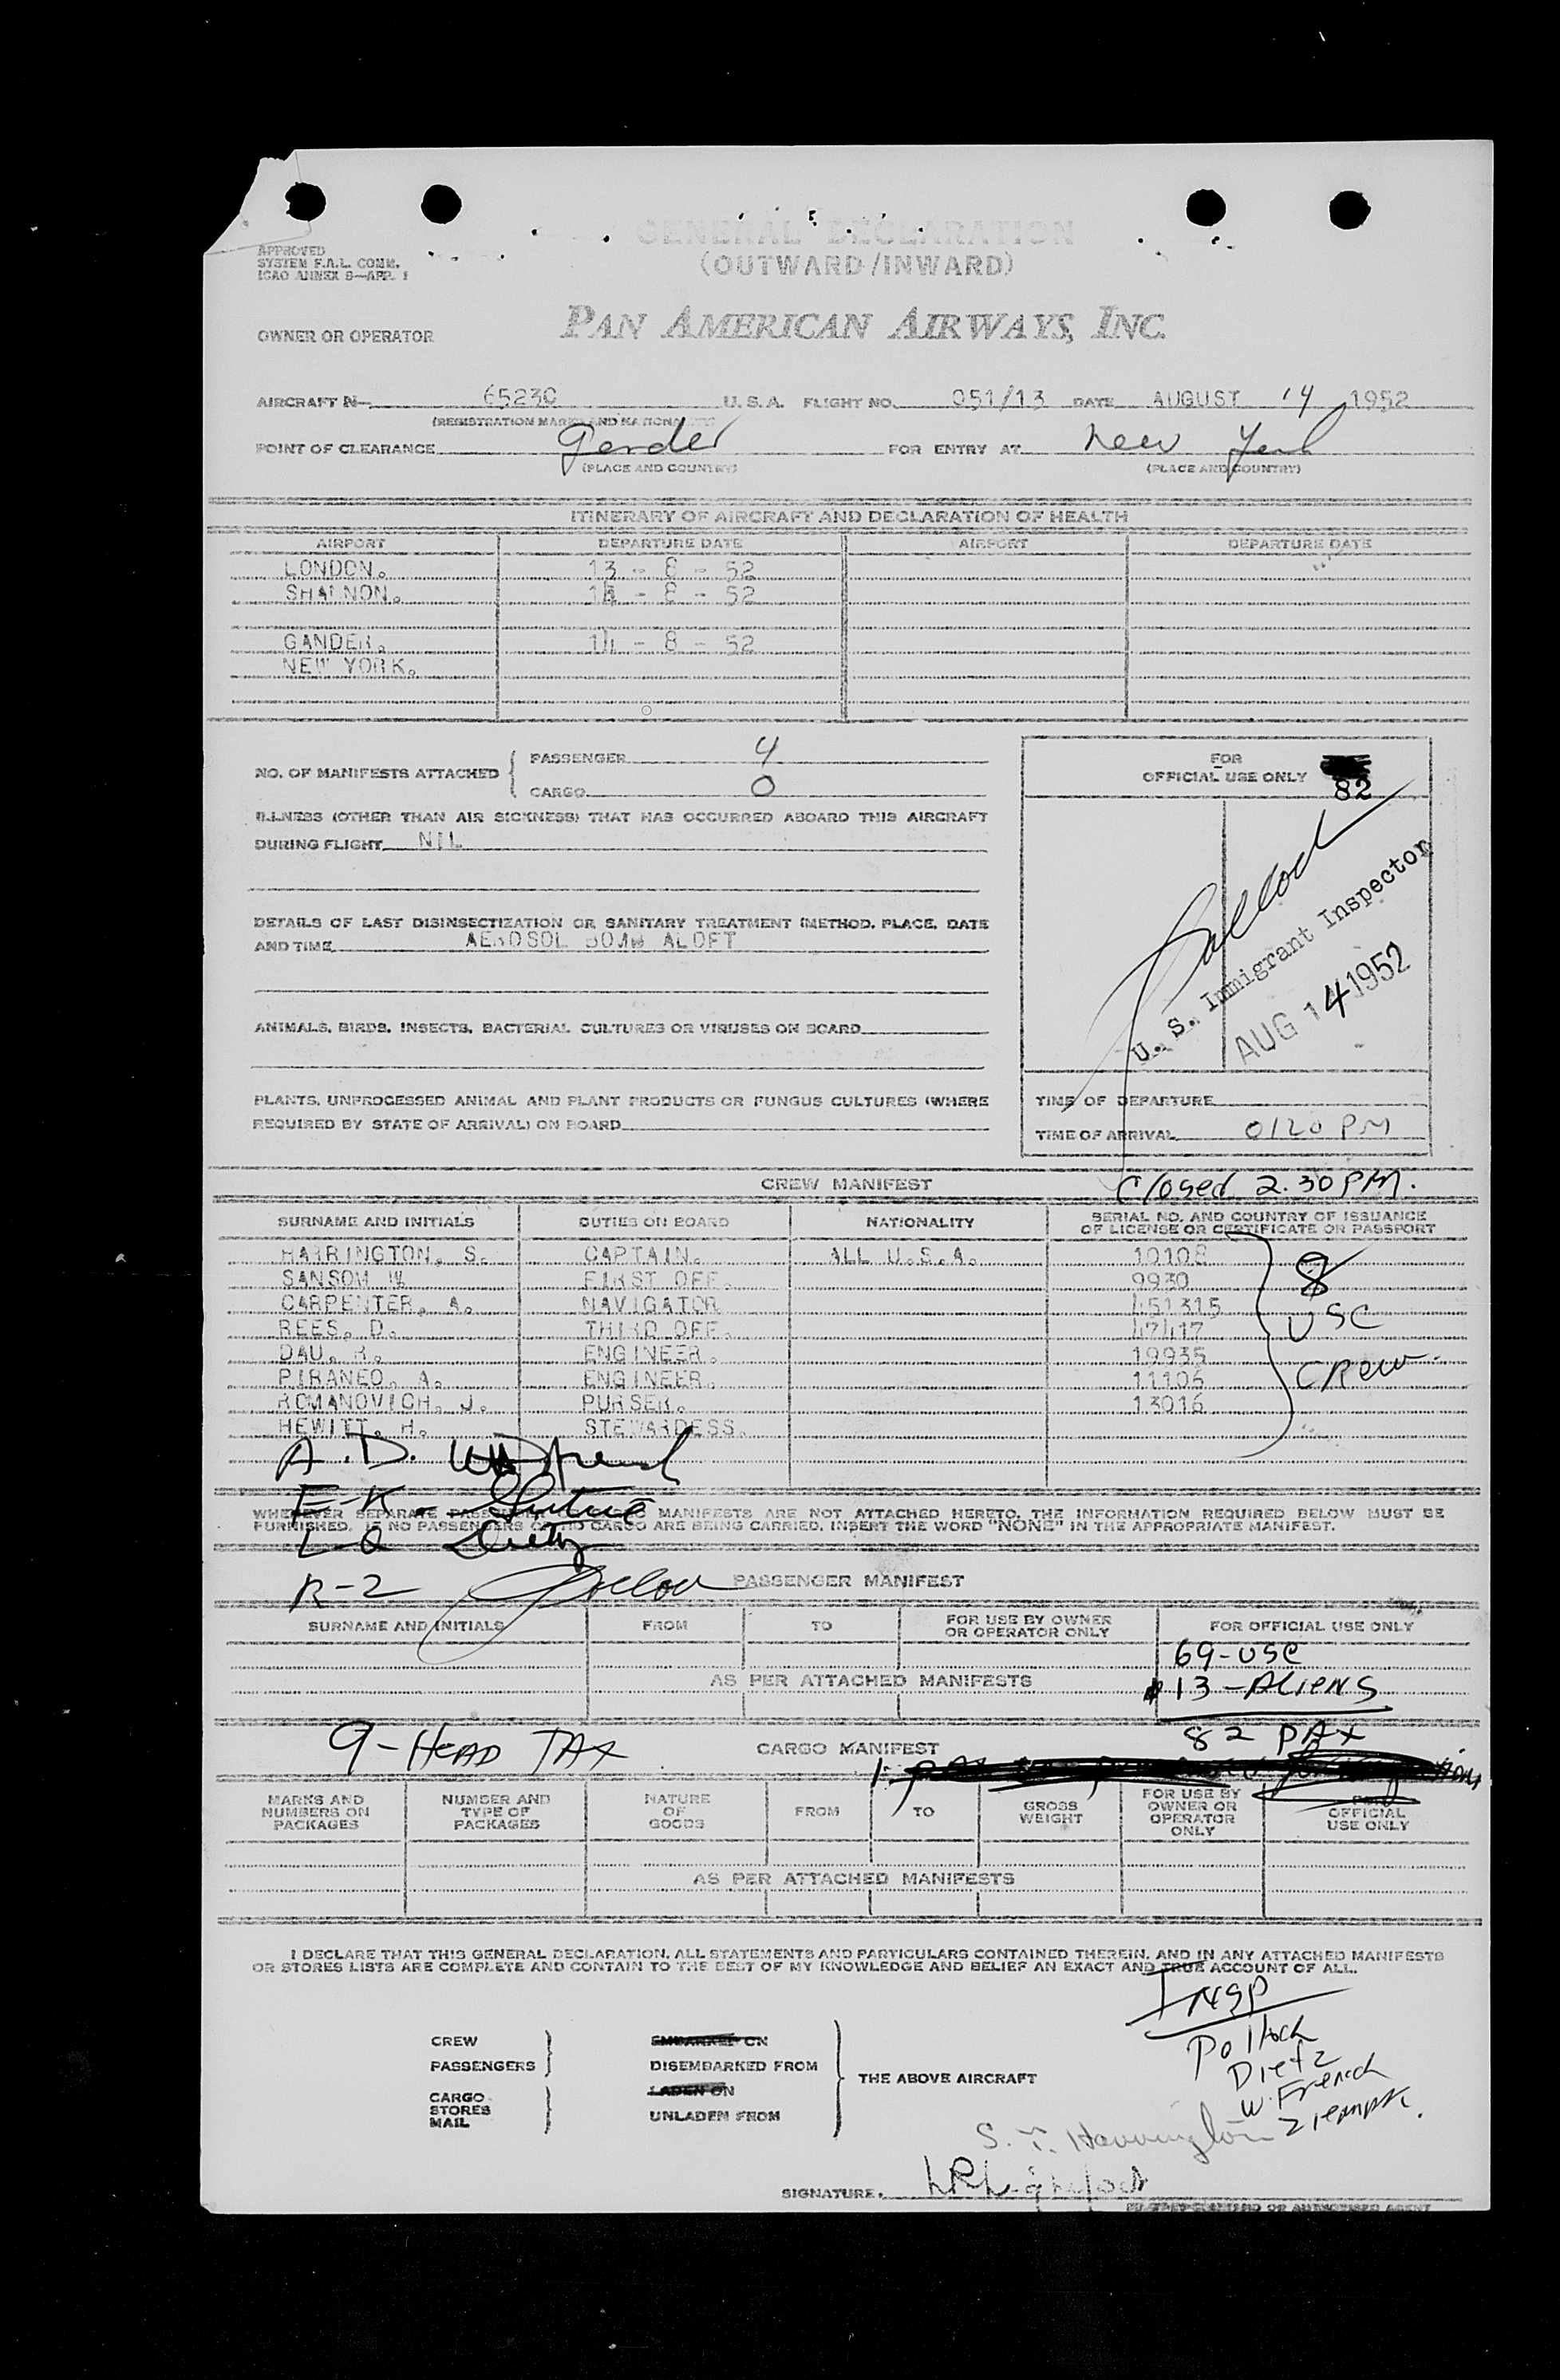 GENERAL DECLARATION
(OUTWARD/INWARD)
APPROVED
SYSTEM F.A.L. COMM.
ICAO ANNEX 9—APP. 1
OWNER OR OPERATOR PAN AMERICAN AIRWAYS, INC.
AIRCRAFT N— 65230 U.S.A. FLIGHT NO. 051/13 DATE AUGUST 14 1952
(REGISTRATION MARKS AND NATIONALITY)
POINT OF CLEARANCE Gander FOR ENTRY AT New York
(PLACE AND COUNTRY) (PLACE AND COUNTRY)
ITINERARY OF AIRCRAFT AND DECLARATION OF HEALTH
AIRPORT DEPARTURE DATE AIRPORT DEPARTURE DATE
LONDON. 13 - 8 - 52
SHANNON. 14 - 8 - 52
GANDER. 14 - 8 - 52
NEW YORK.
NO. OF MANIFESTS ATTACHED { PASSENGER 4
CARGO 0
FOR
OFFICIAL USE ONLY
82
ILLNESS (OTHER THAN AIR SICKNESS) THAT HAS OCCURRED ABOARD THIS AIRCRAFT
DURING FLIGHT NIL
DETAILS OF LAST DISINSECTIZATION OR SANITARY TREATMENT (METHOD, PLACE, DATE
AND TIME AEROSOL BOMB ALOFT
Pollock
U. S. Immigrant Inspector
AUG 14 1952
ANIMALS, BIRDS, INSECTS, BACTERIAL CULTURES OR VIRUSES ON BOARD
PLANTS, UNPROCESSED ANIMAL AND PLANT PRODUCTS OR FUNGUS CULTURES (WHERE
REQUIRED BY STATE OF ARRIVAL) ON BOARD
TIME OF DEPARTURE
TIME OF ARRIVAL 0120 PM
CREW MANIFEST Closed 2.30 PM.
SURNAME AND INITIALS DUTIES ON BOARD NATIONALITY SERIAL NO. AND COUNTRY OF ISSUANCE
OF LICENSE OR CERTIFICATE OR PASSPORT
HARRINGTON, S. CAPTAIN. ALL U.S.A. 10108
SANSOM W FIRST OFF. 9930
CARPENTER, A. NAVIGATOR 451315
REES, D. THIRD OFF. 47417
DAU, R. ENGINEER. 19935
PIRANEO, A. ENGINEER. 11106
ROMANOVICH, J. PURSER. 13016
HEWITT, H. STEWARDESS.
8
USC
Crew
A.D. French
E-K -
WHENEVER SEPARATE PASSENGER OR CARGO MANIFESTS ARE NOT ATTACHED HERETO, THE INFORMATION REQUIRED BELOW MUST BE
FURNISHED. IF NO PASSENGERS OR NO CARGO ARE BEING CARRIED, INSERT THE WORD "NONE" IN THE APPROPRIATE MANIFEST.
L-Q Dietz
R-Z Pollock
PASSENGER MANIFEST
SURNAME AND INITIALS FROM TO FOR USE BY OWNER
OR OPERATOR ONLY FOR OFFICIAL USE ONLY
69-USC
AS PER ATTACHED MANIFESTS 13-ALIENS
9-HEAD TAX 82 PAX
CARGO MANIFEST
MARKS AND
NUMBERS ON
PACKAGES NUMBER AND
TYPE OF
PACKAGES NATURE
OF
GOODS FROM TO GROSS
WEIGHT FOR USE BY
OWNER OR
OPERATOR
ONLY FOR
OFFICIAL
USE ONLY
AS PER ATTACHED MANIFESTS
I DECLARE THAT THIS GENERAL DECLARATION, ALL STATEMENTS AND PARTICULARS CONTAINED THEREIN, AND IN ANY ATTACHED MANIFESTS
OR STORES LISTS ARE COMPLETE AND CONTAIN TO THE BEST OF MY KNOWLEDGE AND BELIEF AN EXACT AND TRUE ACCOUNT OF ALL.
INSP
Pollock
Dietz
W. French
CREW
PASSENGERS
CARGO
STORES
MAIL
EMBARKED ON
DISEMBARKED FROM
LADEN ON
UNLADEN FROM
THE ABOVE AIRCRAFT
S. T. Harrington
SIGNATURE.
OR AUTHORISED AGENT